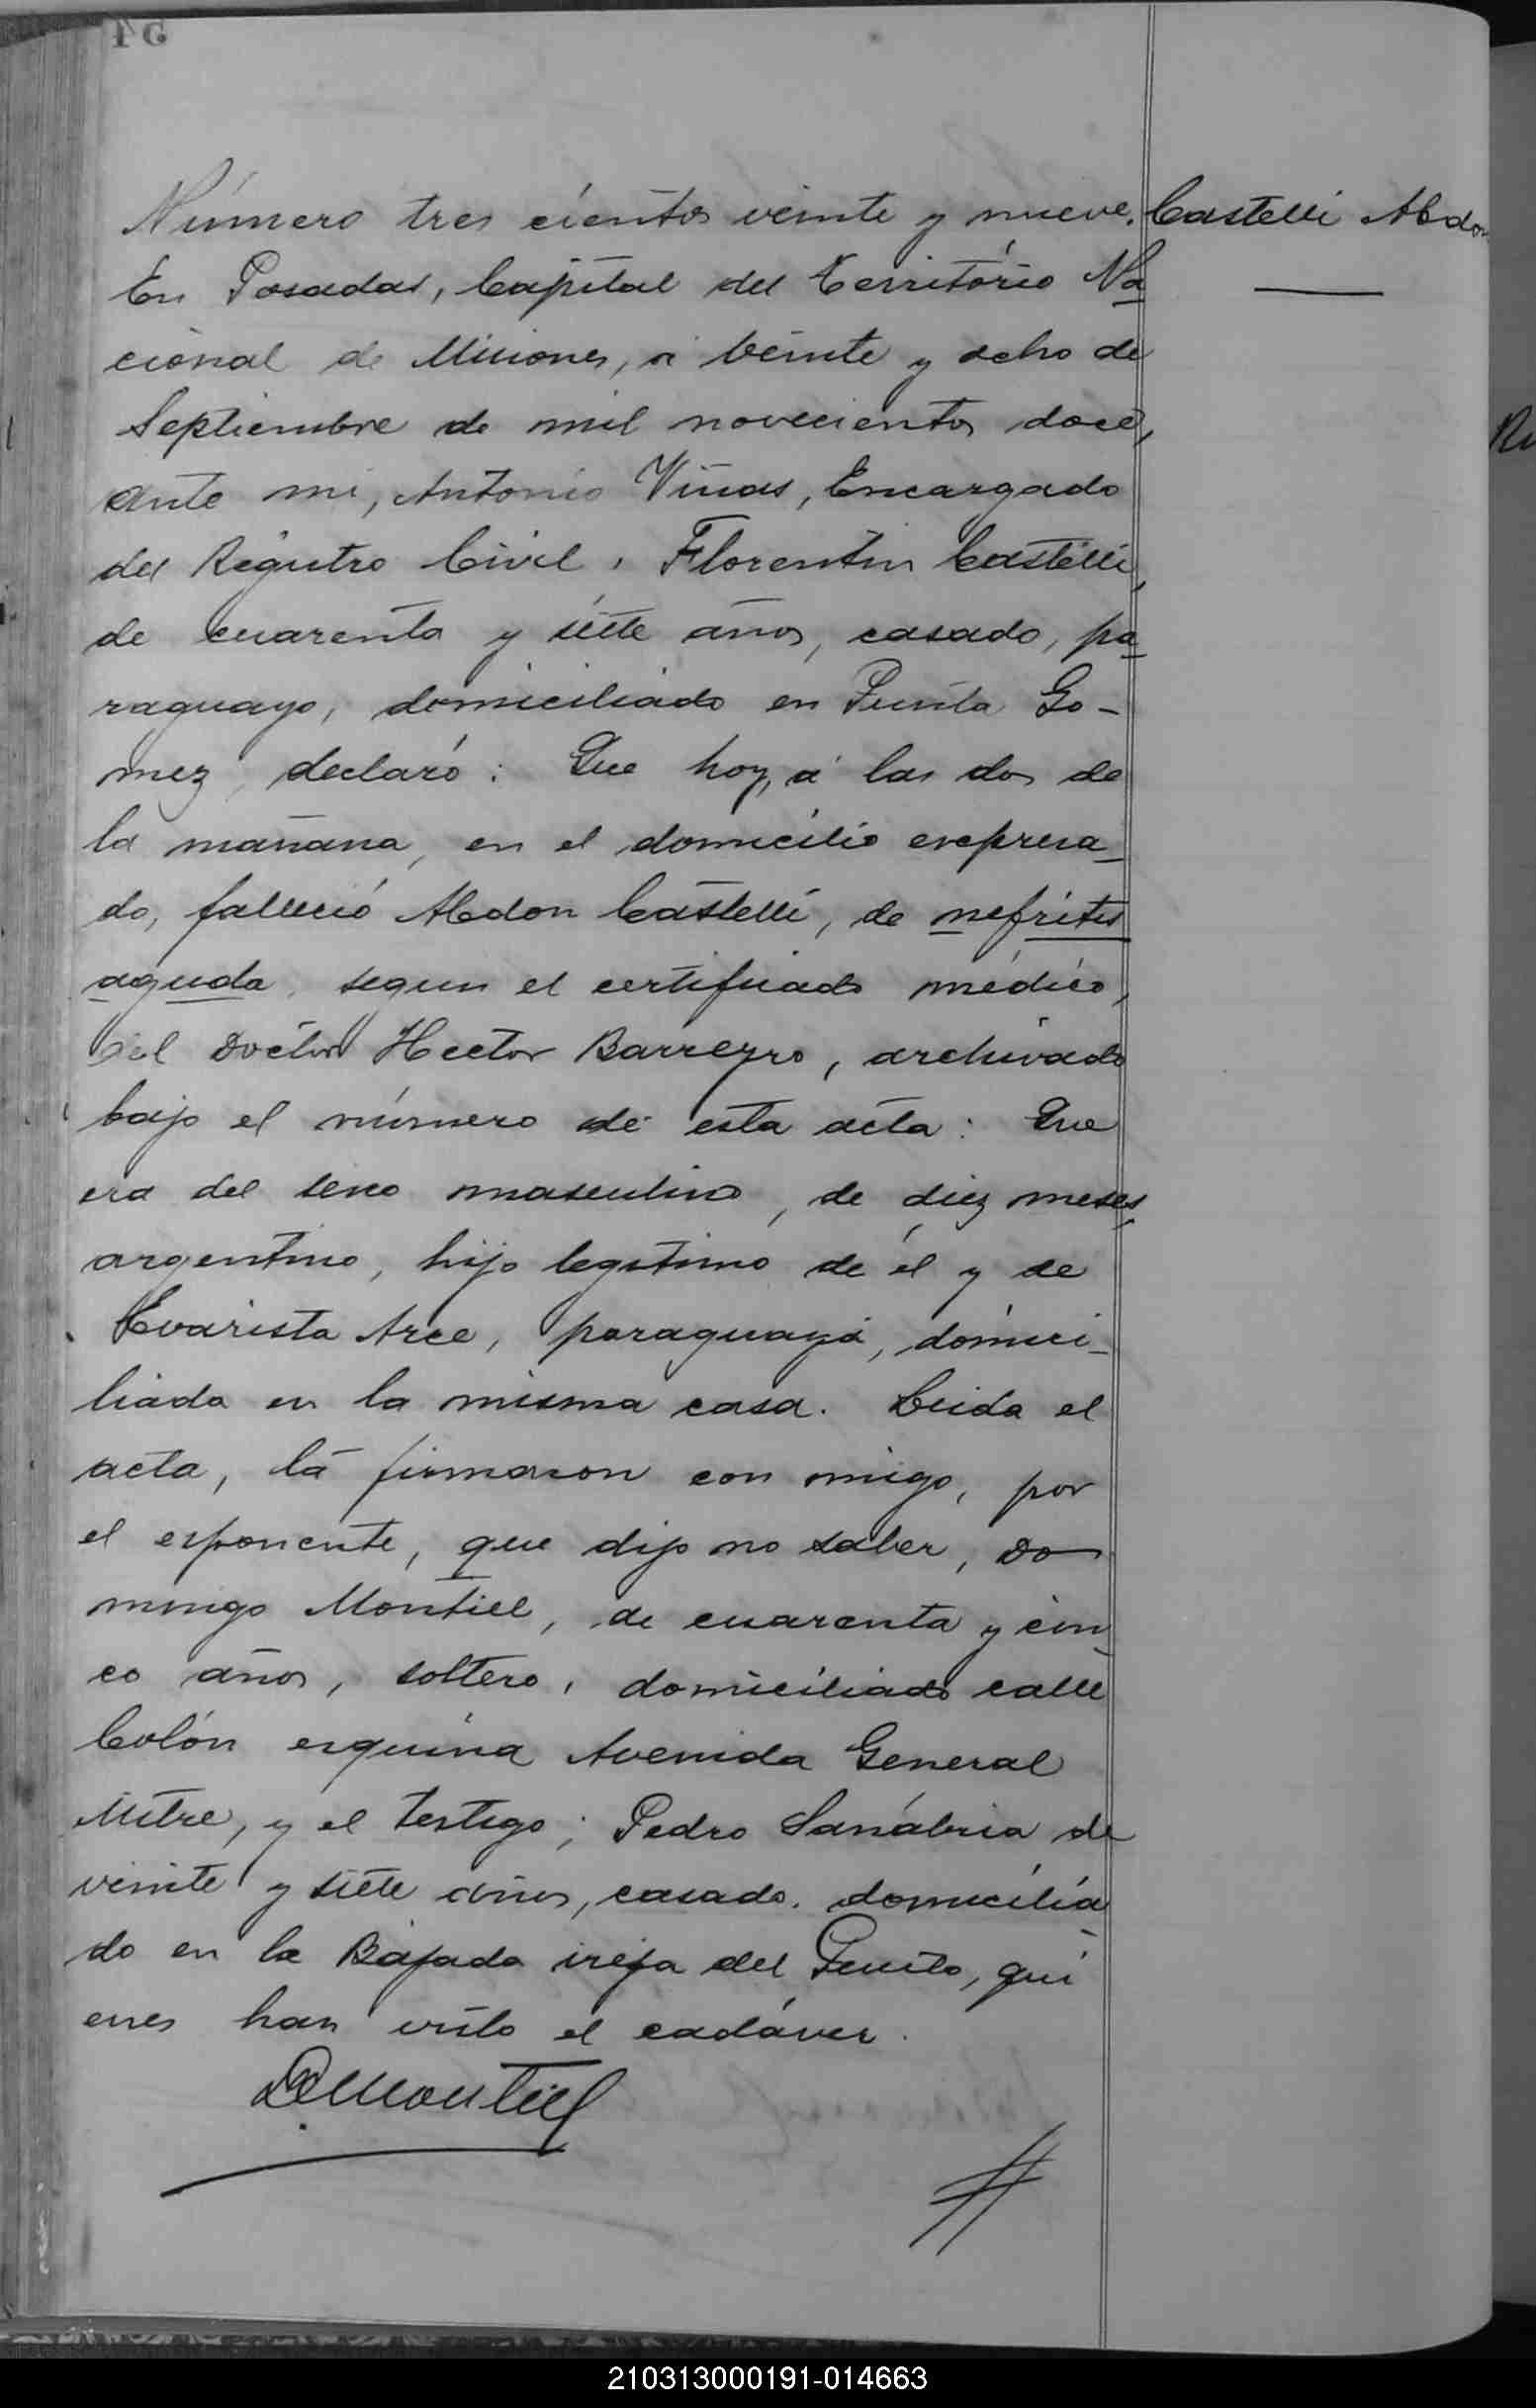 Número tres cientos veinte y nueve. Castelli Abdon
En Posadas, Capital del Territorio Na
cional de Misiones, á veinte y ocho de
Septiembre de mil novecientos doce,
ante mi, Antonio Viñas, Encargado
del Registro Civil, Florentin Castelli,
de cuarenta y siete años, casado, pa
raguayo, domiciliado en Punta Go-
mez, declaró: Que hoy, á las dos de
la mañana, en el domicilio expresa-
do, falleció Abdon Castelli, de nefritis
aguda, segun el certificado médico,
del Doctor Hector Barreyro, archivado
bajo el número de esta acta: Que
era del sexo masculino, de diez meses,
argentino, hijo legitimo de él y de
Evarista Arce, paraguaya, domici-
liada en la misma casa. Leida el
acta, la firmaron con migo, por
el esponente, que dijo no saber, Do
mingo Montiel, de cuarenta y cin
co años, soltero, domiciliado calle
Colón esquina Avenida General
Mitre, y el testigo; Pedro Sanabria de
veinte y siete años, casado, domicilia
do en la Bajada vieja del Puerto, qui
enes han visto el cadáver.
D. Montiel
210313000191-014663